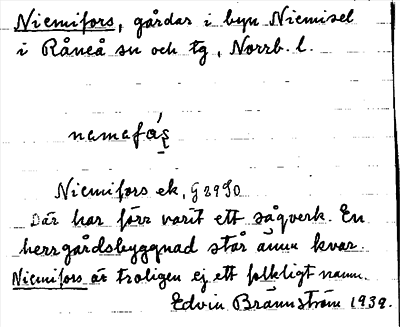 Niemifors, gårdar i byn Niemisel
i Råneå sn och tg, Norrb. l.
Niemifors ek, G 2950
Där har förr varit ett sågverk. En
herrgårdsbyggnad står ännu kvar.
Niemifors är troligen ej ett folkligt namn.
Edvin Brännström 1939.